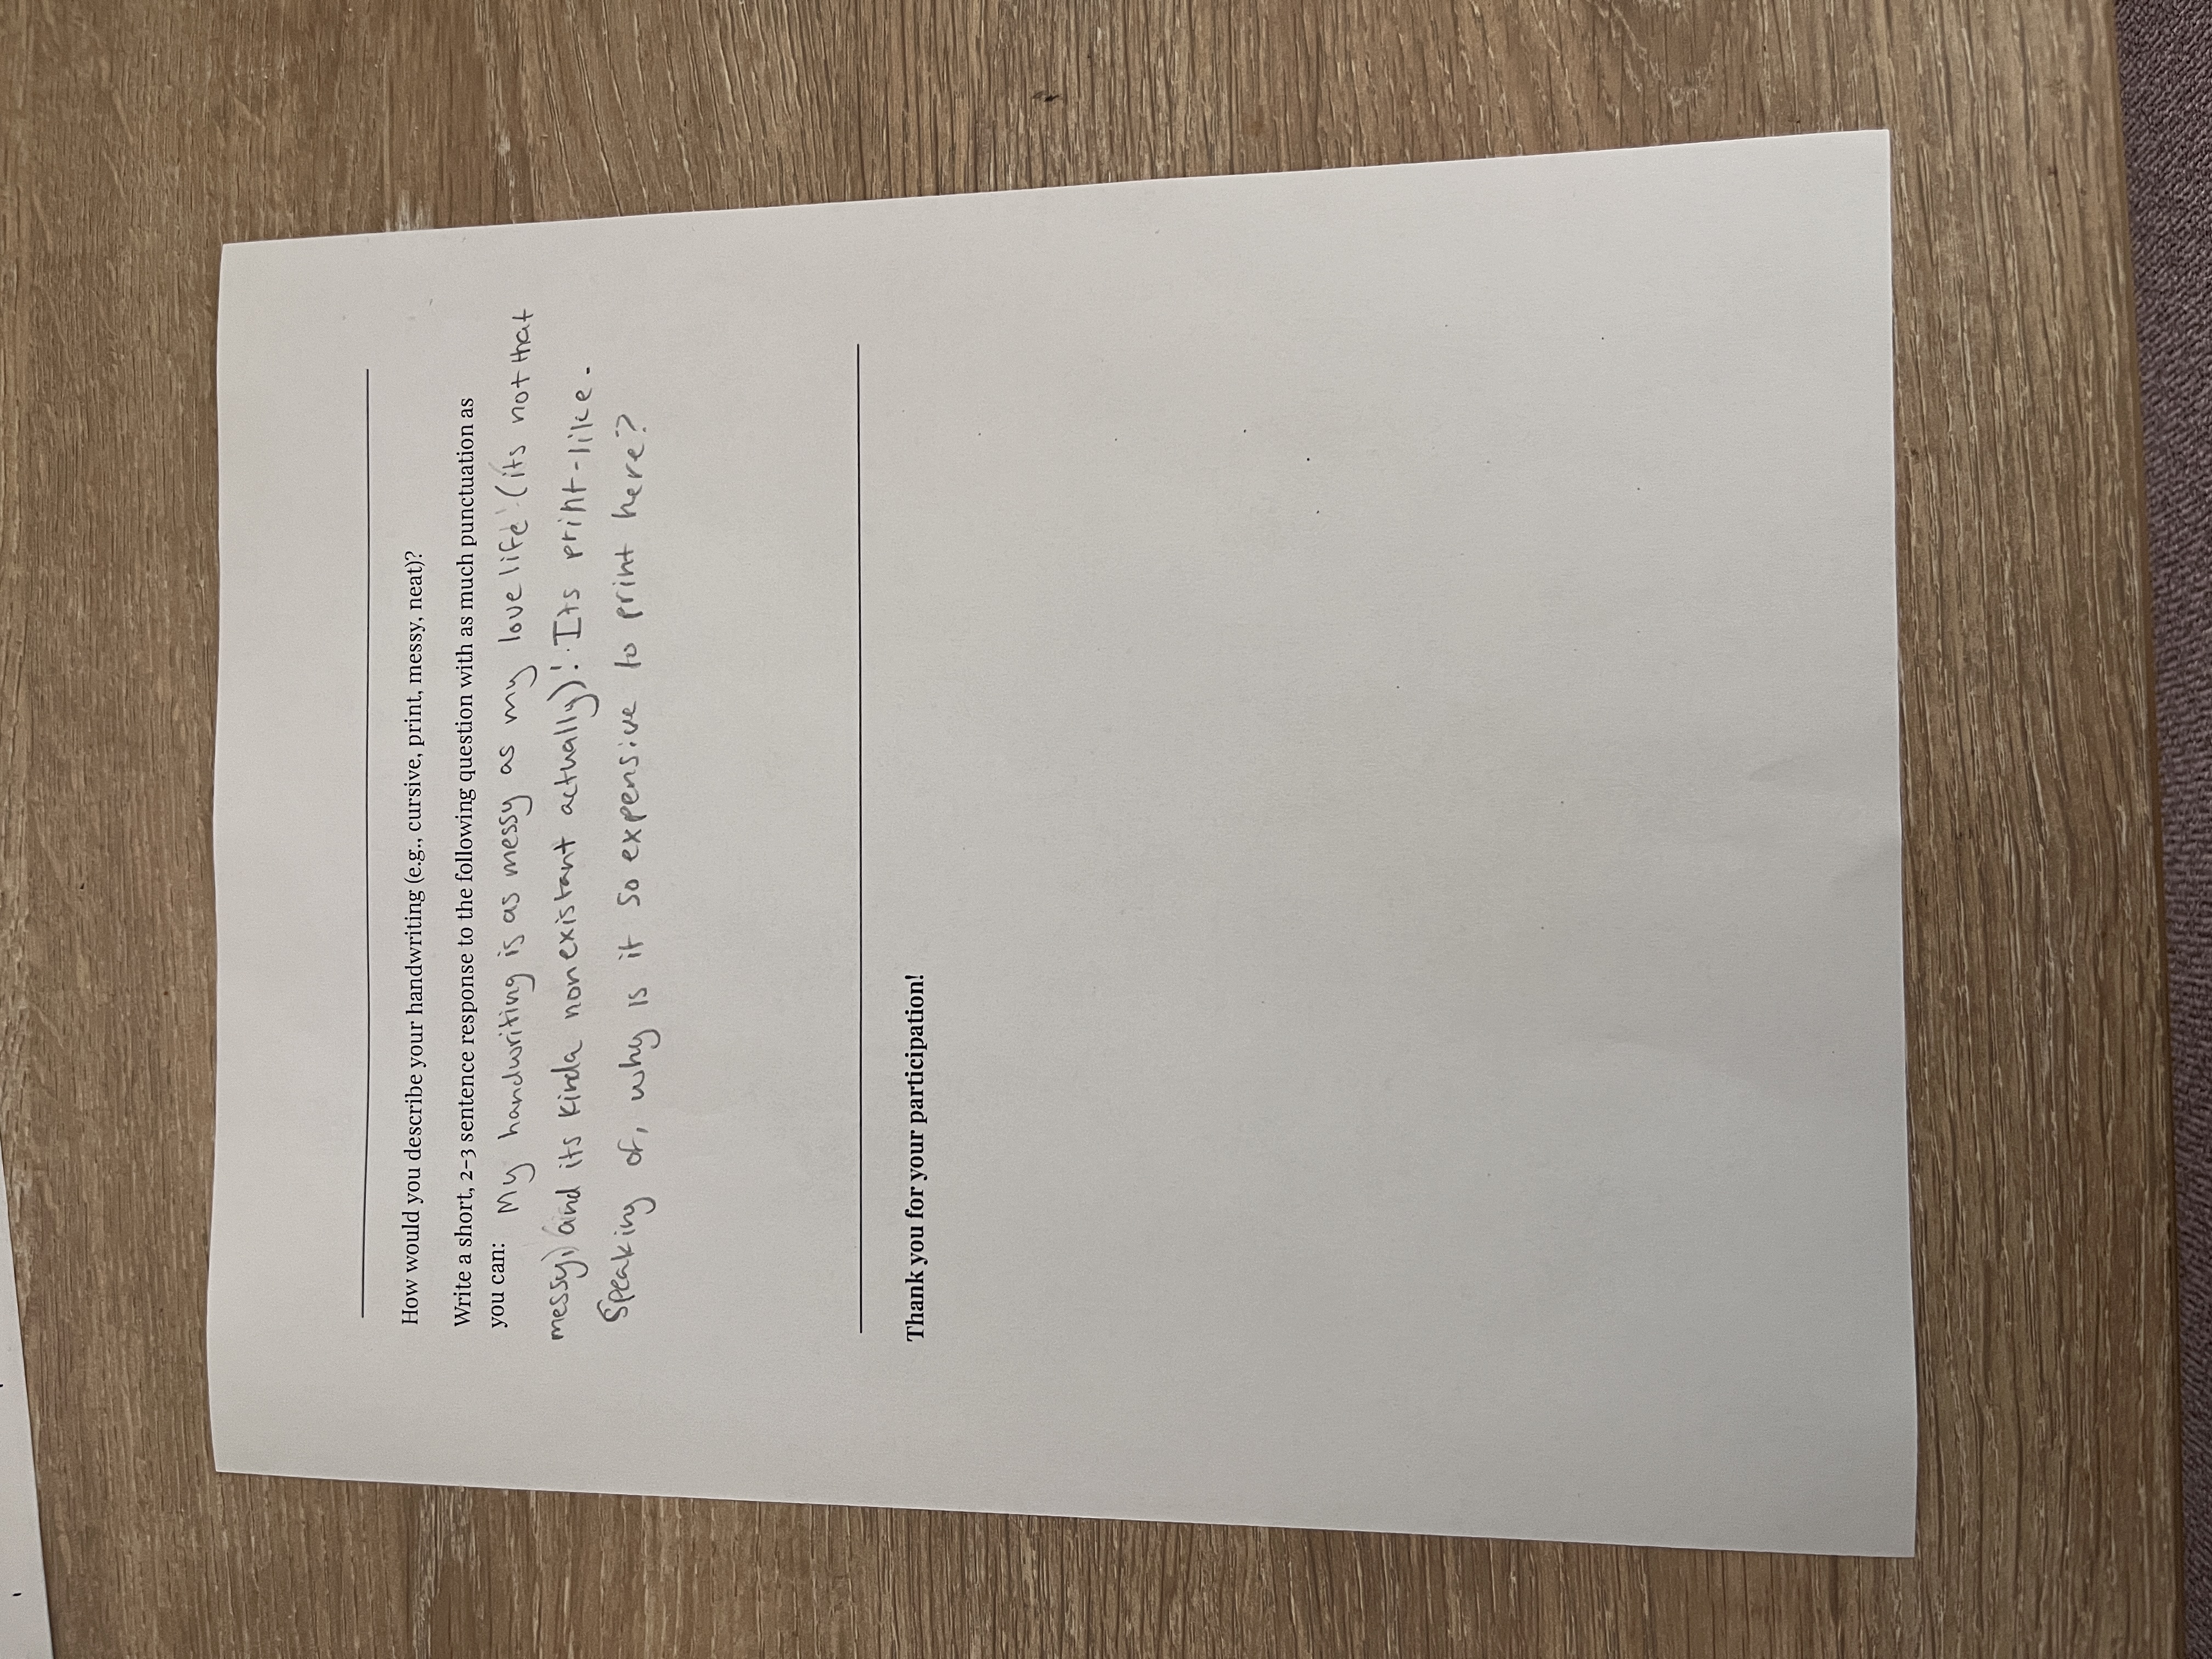 How would you describe your handwriting (e.g., cursive, print, messy, neat)?
Write a short, 2–3 sentence response to the following question with as much punctuation as
you can: My handwriting is as messy as my love life (its not that
messy, and its kinda nonexistant actually)! Its print-like.
Speaking of, why is it so expensive to print here?
Thank you for your participation!